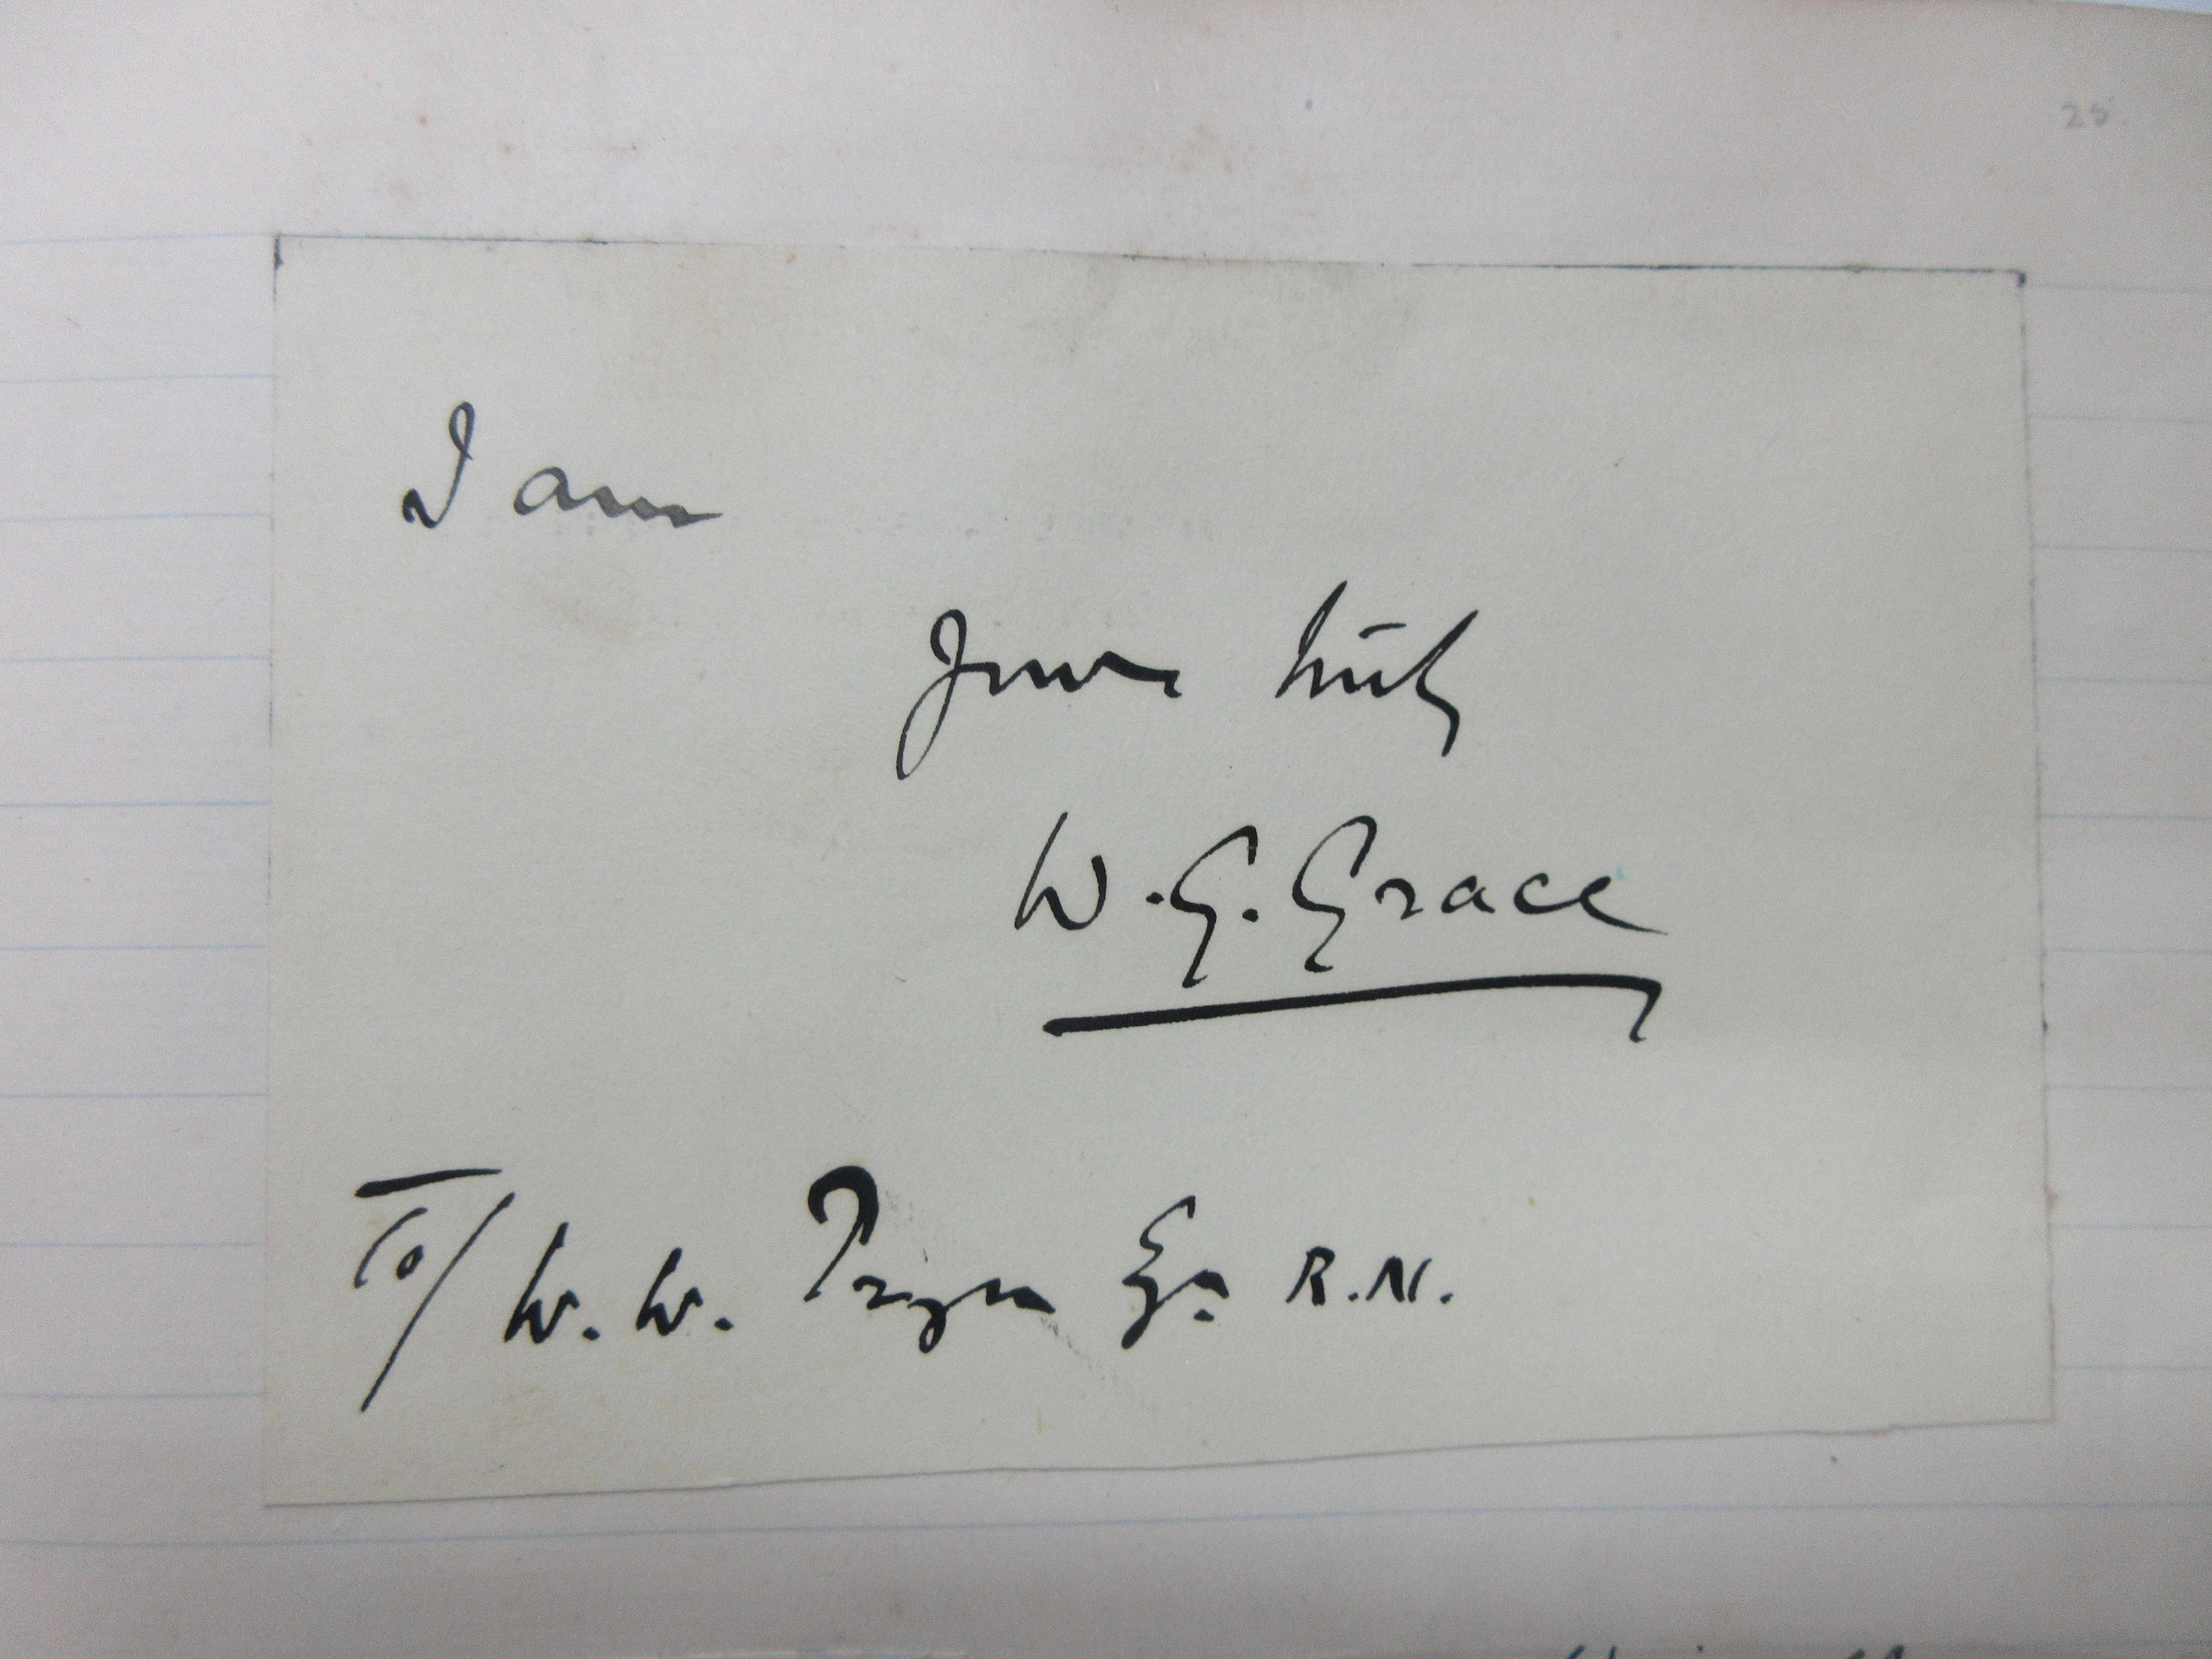 25.
I am
Yours truly
W. G. Grace
To/ W. W. Esq R.N.